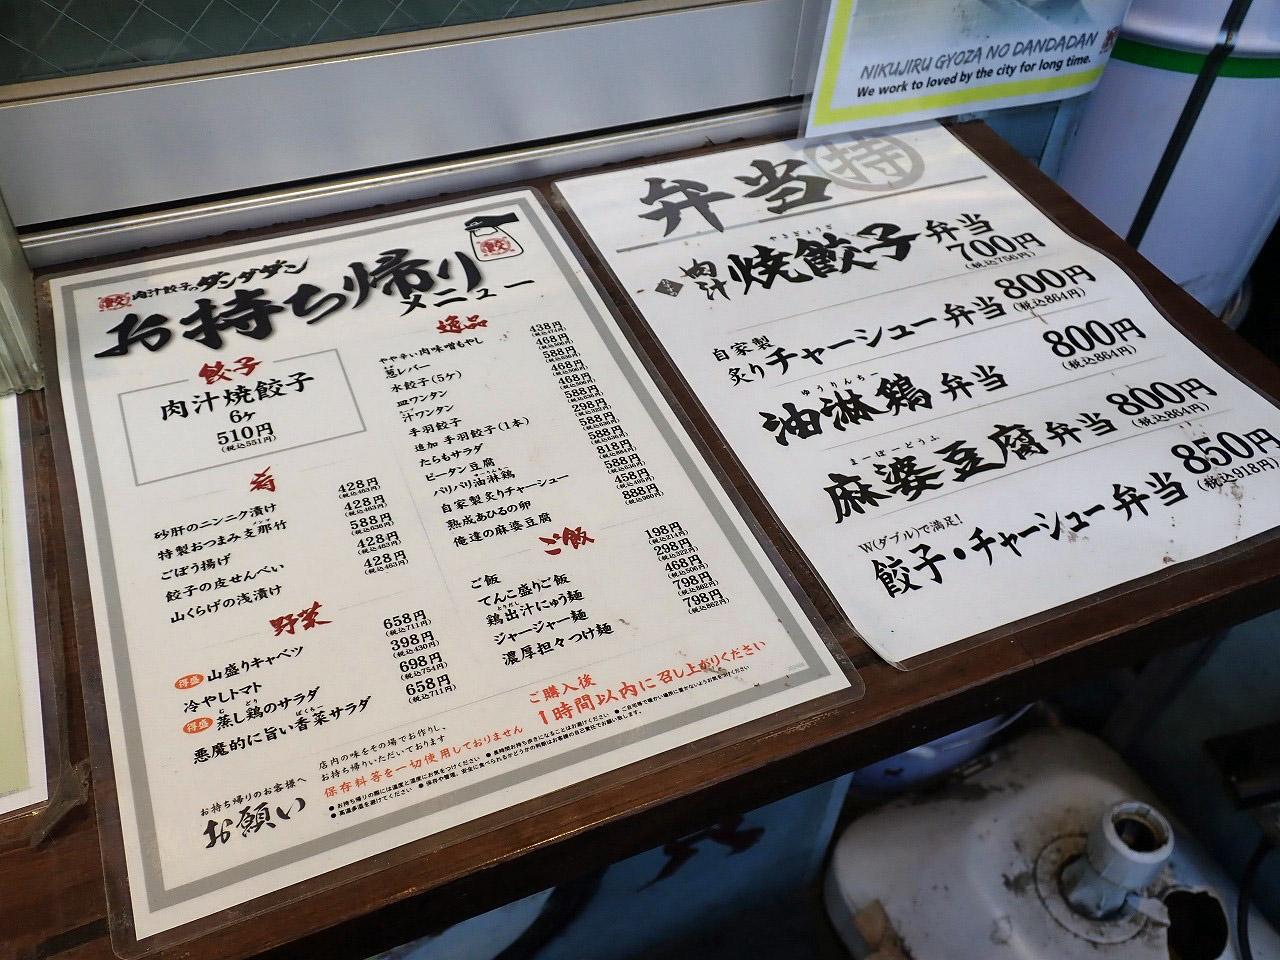 NIKUJIRU GYOZA NO DANDADAN
We work to loved by the city for long time.
餃 肉汁餃子のダンダダン
お持ち帰り
メニュー
餃
餃子
肉汁焼餃子
6ケ
510円
(税込551円)
肴
砂肝のニンニク漬け 428円
(税込463円)
特製おつまみ支那竹 428円
(税込463円)
ごぼう揚げ 588円
(税込636円)
餃子の皮せんべい 428円
(税込463円)
山くらげの浅漬け 428円
(税込463円)
野菜
得盛 山盛りキャベツ 658円
(税込711円)
冷やしトマト 398円
(税込430円)
得盛 蒸し鶏のサラダ 698円
(税込754円)
悪魔的に旨い香菜サラダ 658円
(税込711円)
逸品
やや辛い肉味噌もやし 438円
葱レバー 468円
水餃子(5ケ) 588円
皿ワンタン 468円
汁ワンタン 468円
手羽餃子 588円
追加 手羽餃子(1本) 298円
たらもサラダ 588円
ピータン豆腐 588円
パリパリ油淋鶏 818円
自家製炙りチャーシュー 588円
熟成あひるの卵 458円
俺達の麻婆豆腐 888円
ご飯
ご飯 198円
(税込214円)
てんこ盛りご飯 298円
(税込322円)
鶏出汁にゅう麺 468円
(税込506円)
ジャージャー麺 798円
(税込862円)
濃厚担々つけ麺 798円
(税込862円)
お持ち帰りのお客様へ
お願い
店内の味をその場でお作りし、
お持ち帰りいただいております
保存料等を一切使用しておりません
ご購入後
1時間以内に召し上がりください
弁当 持
肉汁焼餃子弁当
やきぎょうざ
700円
(税込756円)
自家製
炙りチャーシュー弁当 800円
(税込864円)
ゆうりんちー
油淋鶏弁当 800円
(税込864円)
まーぼーどうふ
麻婆豆腐弁当 800円
(税込864円)
W(ダブル)で満足!
餃子・チャーシュー弁当 850円
(税込918円)